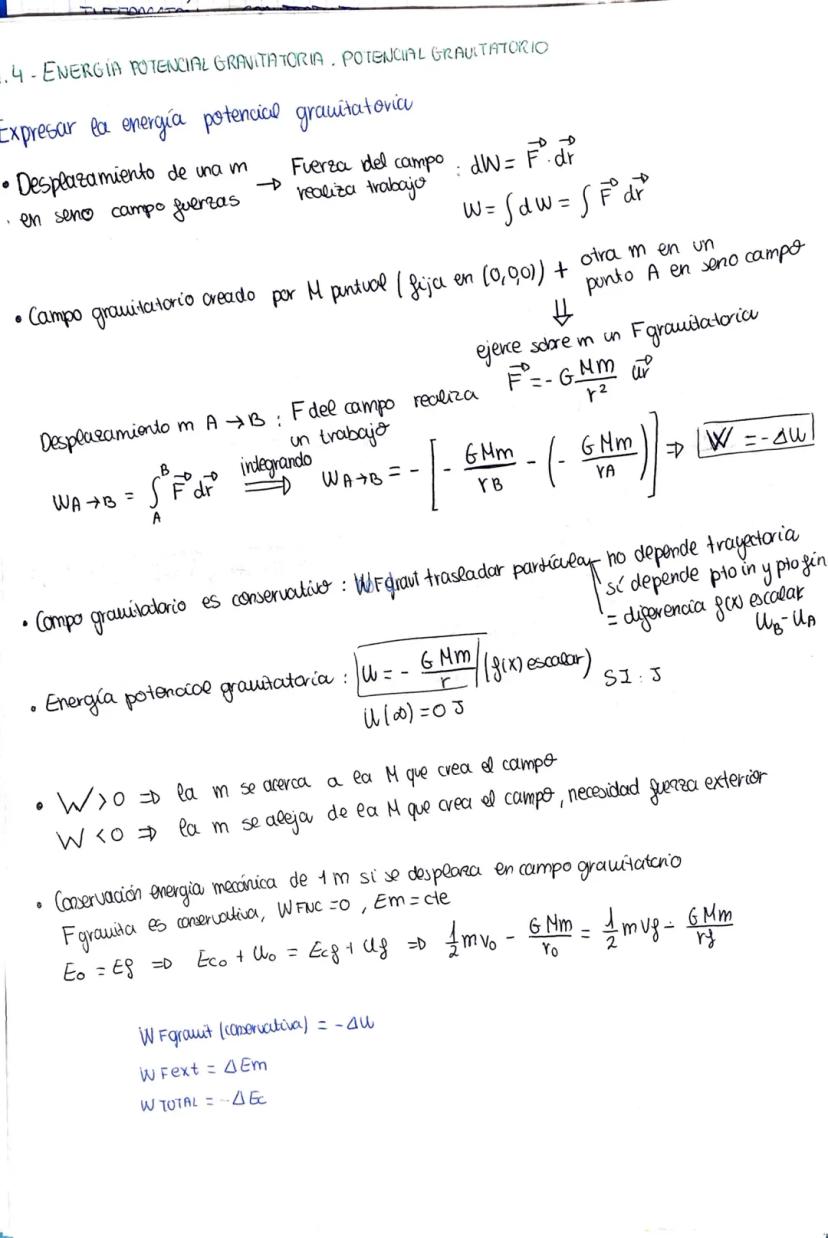 .4 - ENERGÍA POTENCIAL GRAVITATORIA. POTENCIAL GRAVITATORIO
Expresar la energía potencial gravitatoria
• Desplazamiento de una m → Fuerza del campo : dW = F⃗ · dr⃗
. en seno campo fuerzas realiza trabajo
W = ∫dW = ∫ F⃗ dr⃗
• Campo gravitatorio creado por M puntual (fija en (0,0,0)) + otra m en un
punto A en seno campo
⇓
ejerce sobre m un F gravitatoria
F⃗ = - G Mm / r² ur⃗
Desplazamiento m A → B : F del campo realiza
un trabajo
W A→B = ∫_A^B F⃗ dr⃗ integrando ⟹ W A→B = - [ - GMm / rB - ( - GMm / rA ) ] ⇒ W = -ΔU
• Campo gravitatorio es conservativo : W F gravi trasladar partícula no depende trayectoria
sí depende pto in y pto fin
= diferencia f(x) escalar
U_B - U_A
• Energía potencial gravitatoria : U = - GMm / r (f(x) escalar) SI : J
U(∞) = 0 J
• W > 0 ⇒ la m se acerca a la M que crea el campo
W < 0 ⇒ la m se aleja de la M que crea el campo, necesidad fuerza exterior
• Conservación energía mecánica de 1 m si se desplaza en campo gravitatorio
F gravita es conservativa, W FNC = 0 , Em = cte
E₀ = Ef ⇒ Ec₀ + U₀ = Ecf + Uf ⇒ 1/2 m v₀ - GMm / r₀ = 1/2 m vf - GMm / rf
W F gravit (conservativa) = - ΔU
W F ext = ΔEm
W TOTAL = - ΔEc